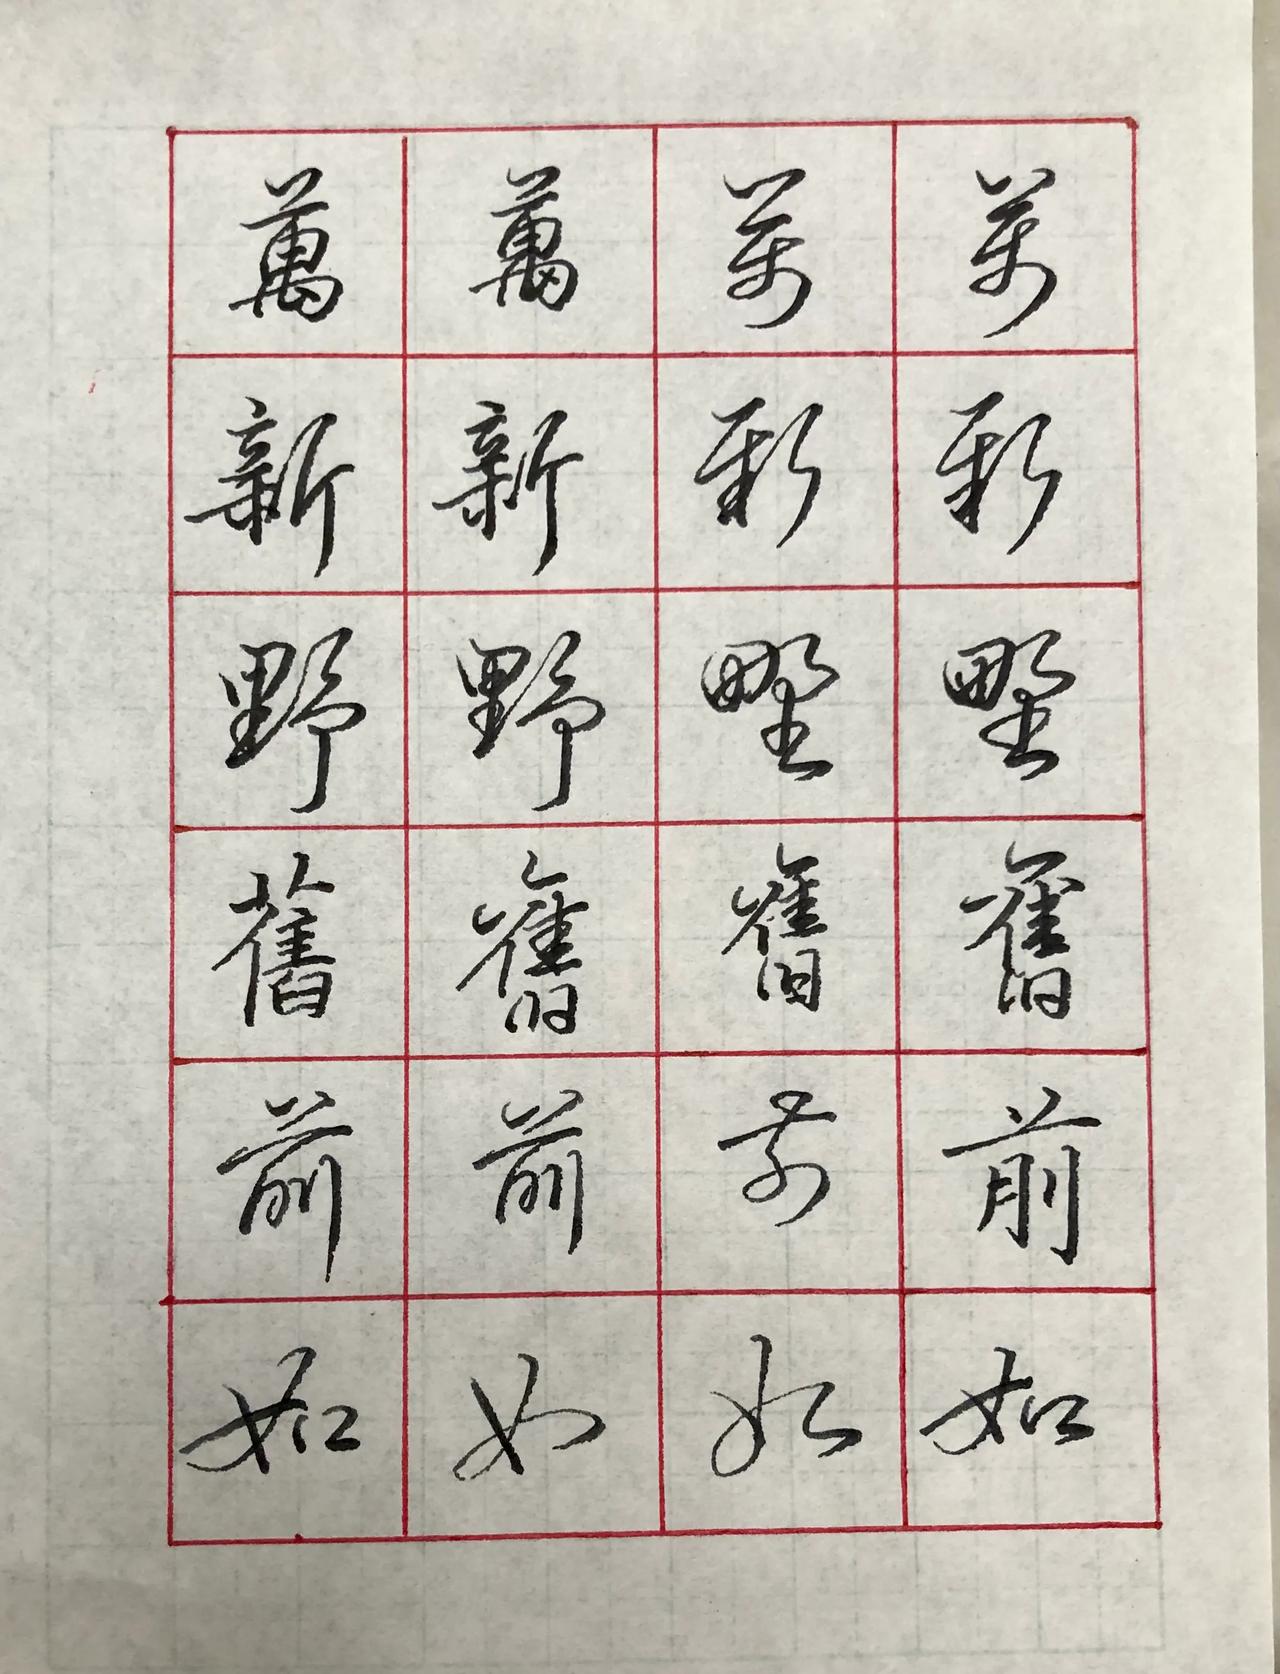 萬萬萬萬
新新新新
野野野野
舊舊舊舊
前前前前
如如如如